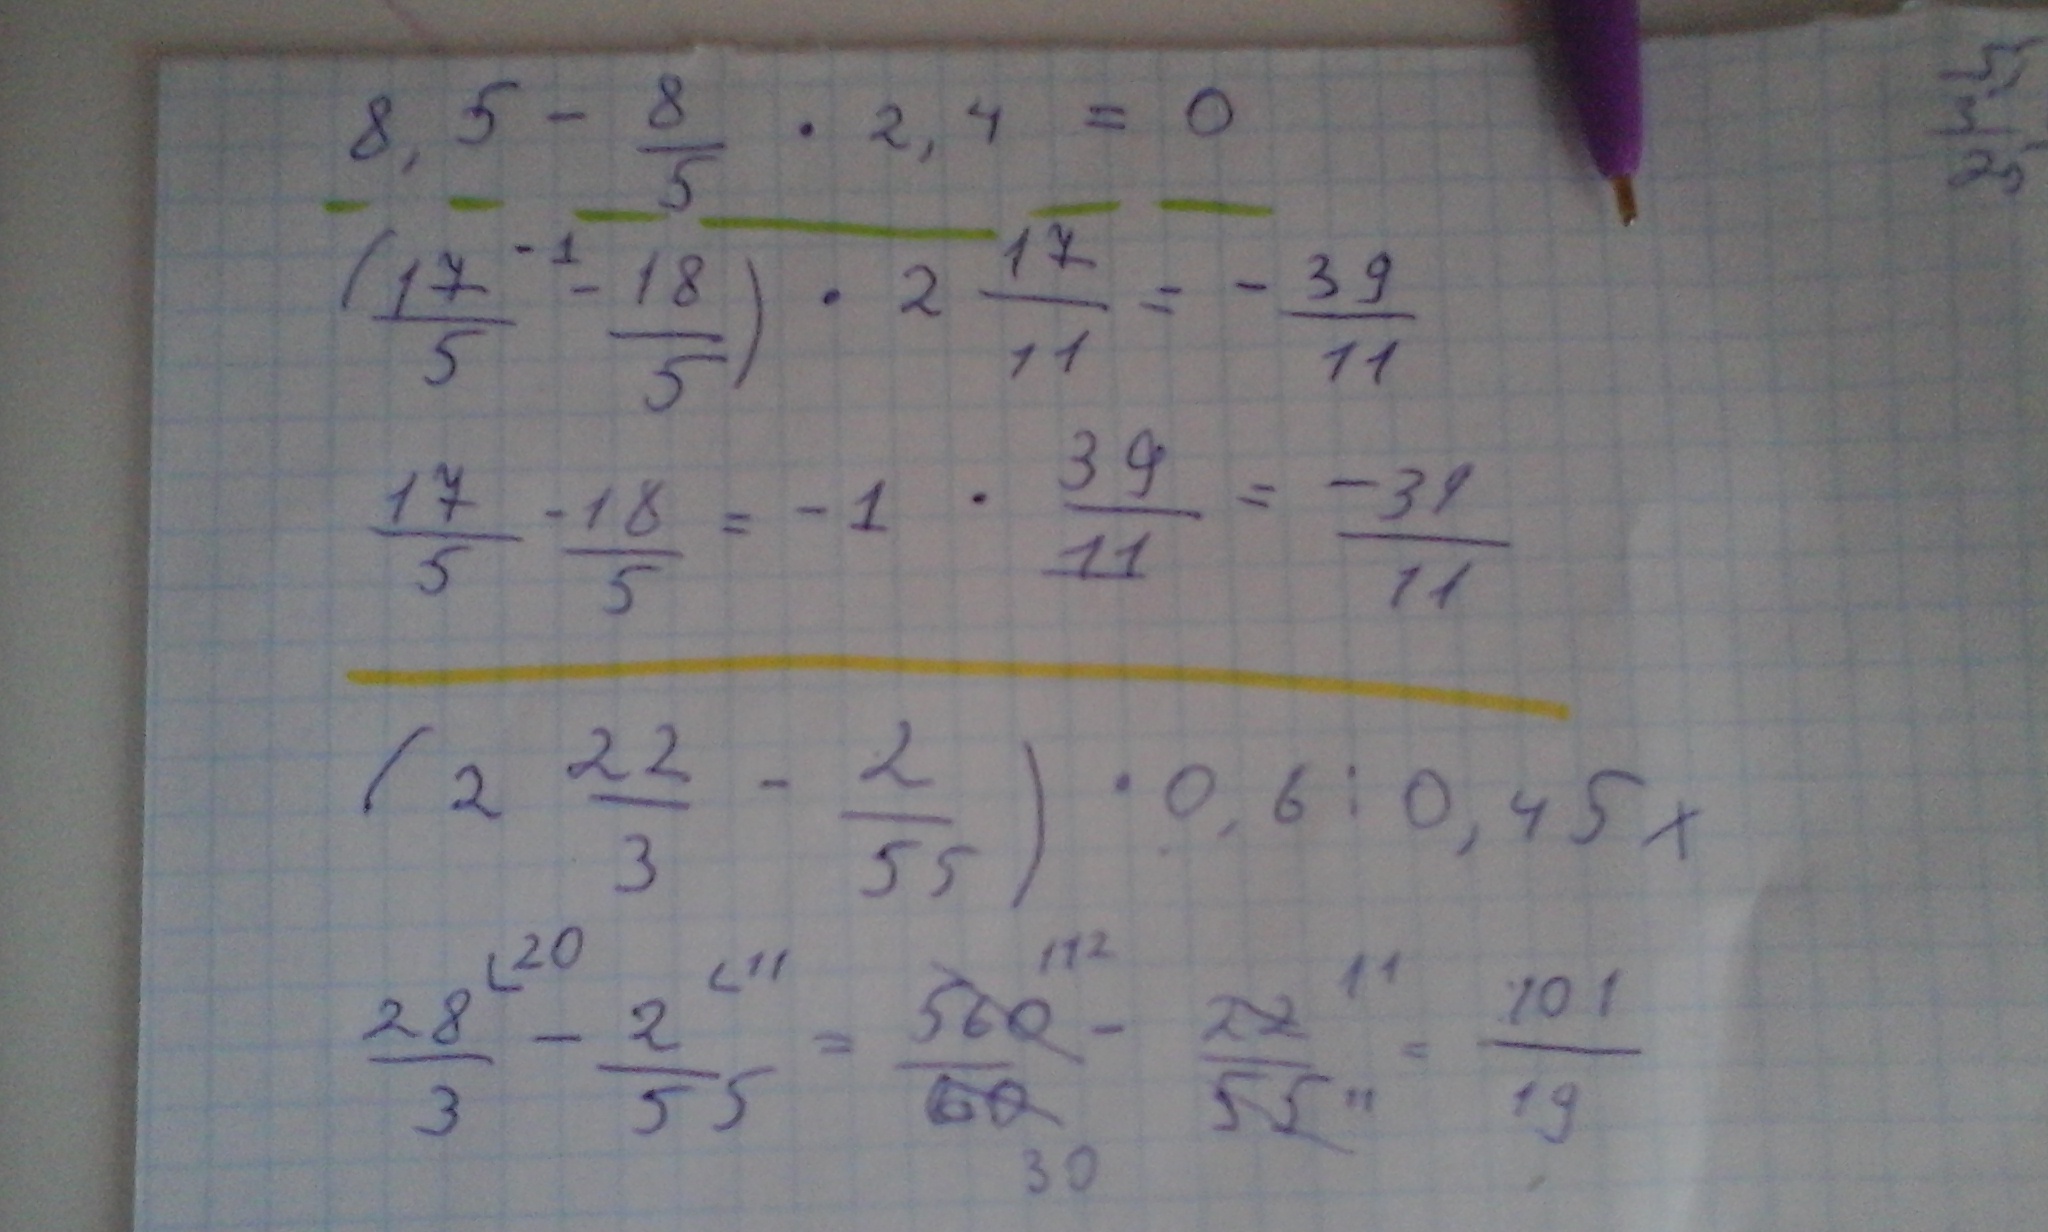 8,5 - 8/5 · 2,4 = 0
(17/5 -1 - 18/5) · 2 17/11 = - 39/11
17/5 - 18/5 = -1 · 39/11 = -39/11
(2 22/3 - 2/55) · 0,6 : 0,45 x
28/3 ⌊20 - 2/55 ⌊11 = 560/60 112 30 - 22/55 11 11 = 101/19